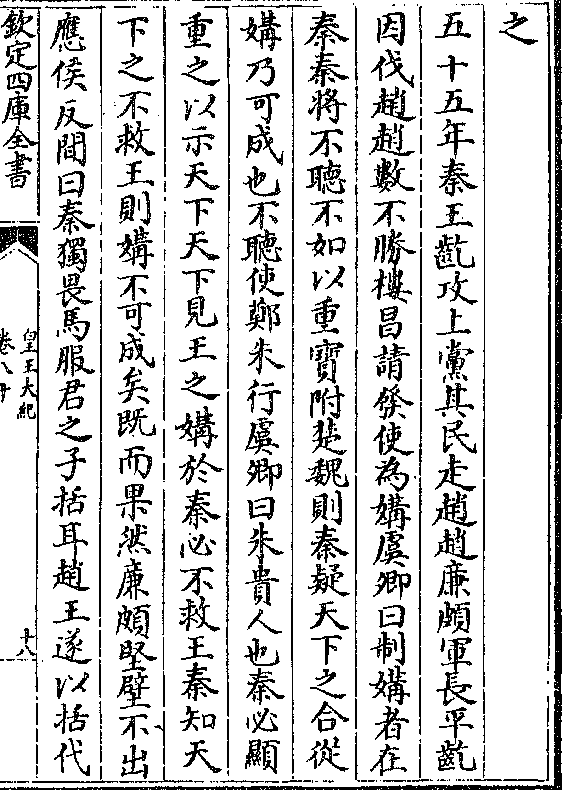 之
五十五年秦王齕攻上黨其民走趙趙廉頗軍長平齕
因伐趙趙數不勝樓昌請發使為媾虞卿曰制媾者在
秦秦將不聽不如以重寶附楚魏則秦疑天下之合從
媾乃可成也不聽使鄭朱行虞卿曰朱貴人也秦必顯
重之以示天下天下見王之媾於秦必不救王秦知天
下之不救王則媾不可成矣既而果然廉頗堅壁不出
應侯反間曰秦獨畏馬服君之子括耳趙王遂以括代
欽定四庫全書
皇王大紀
卷八十
十八